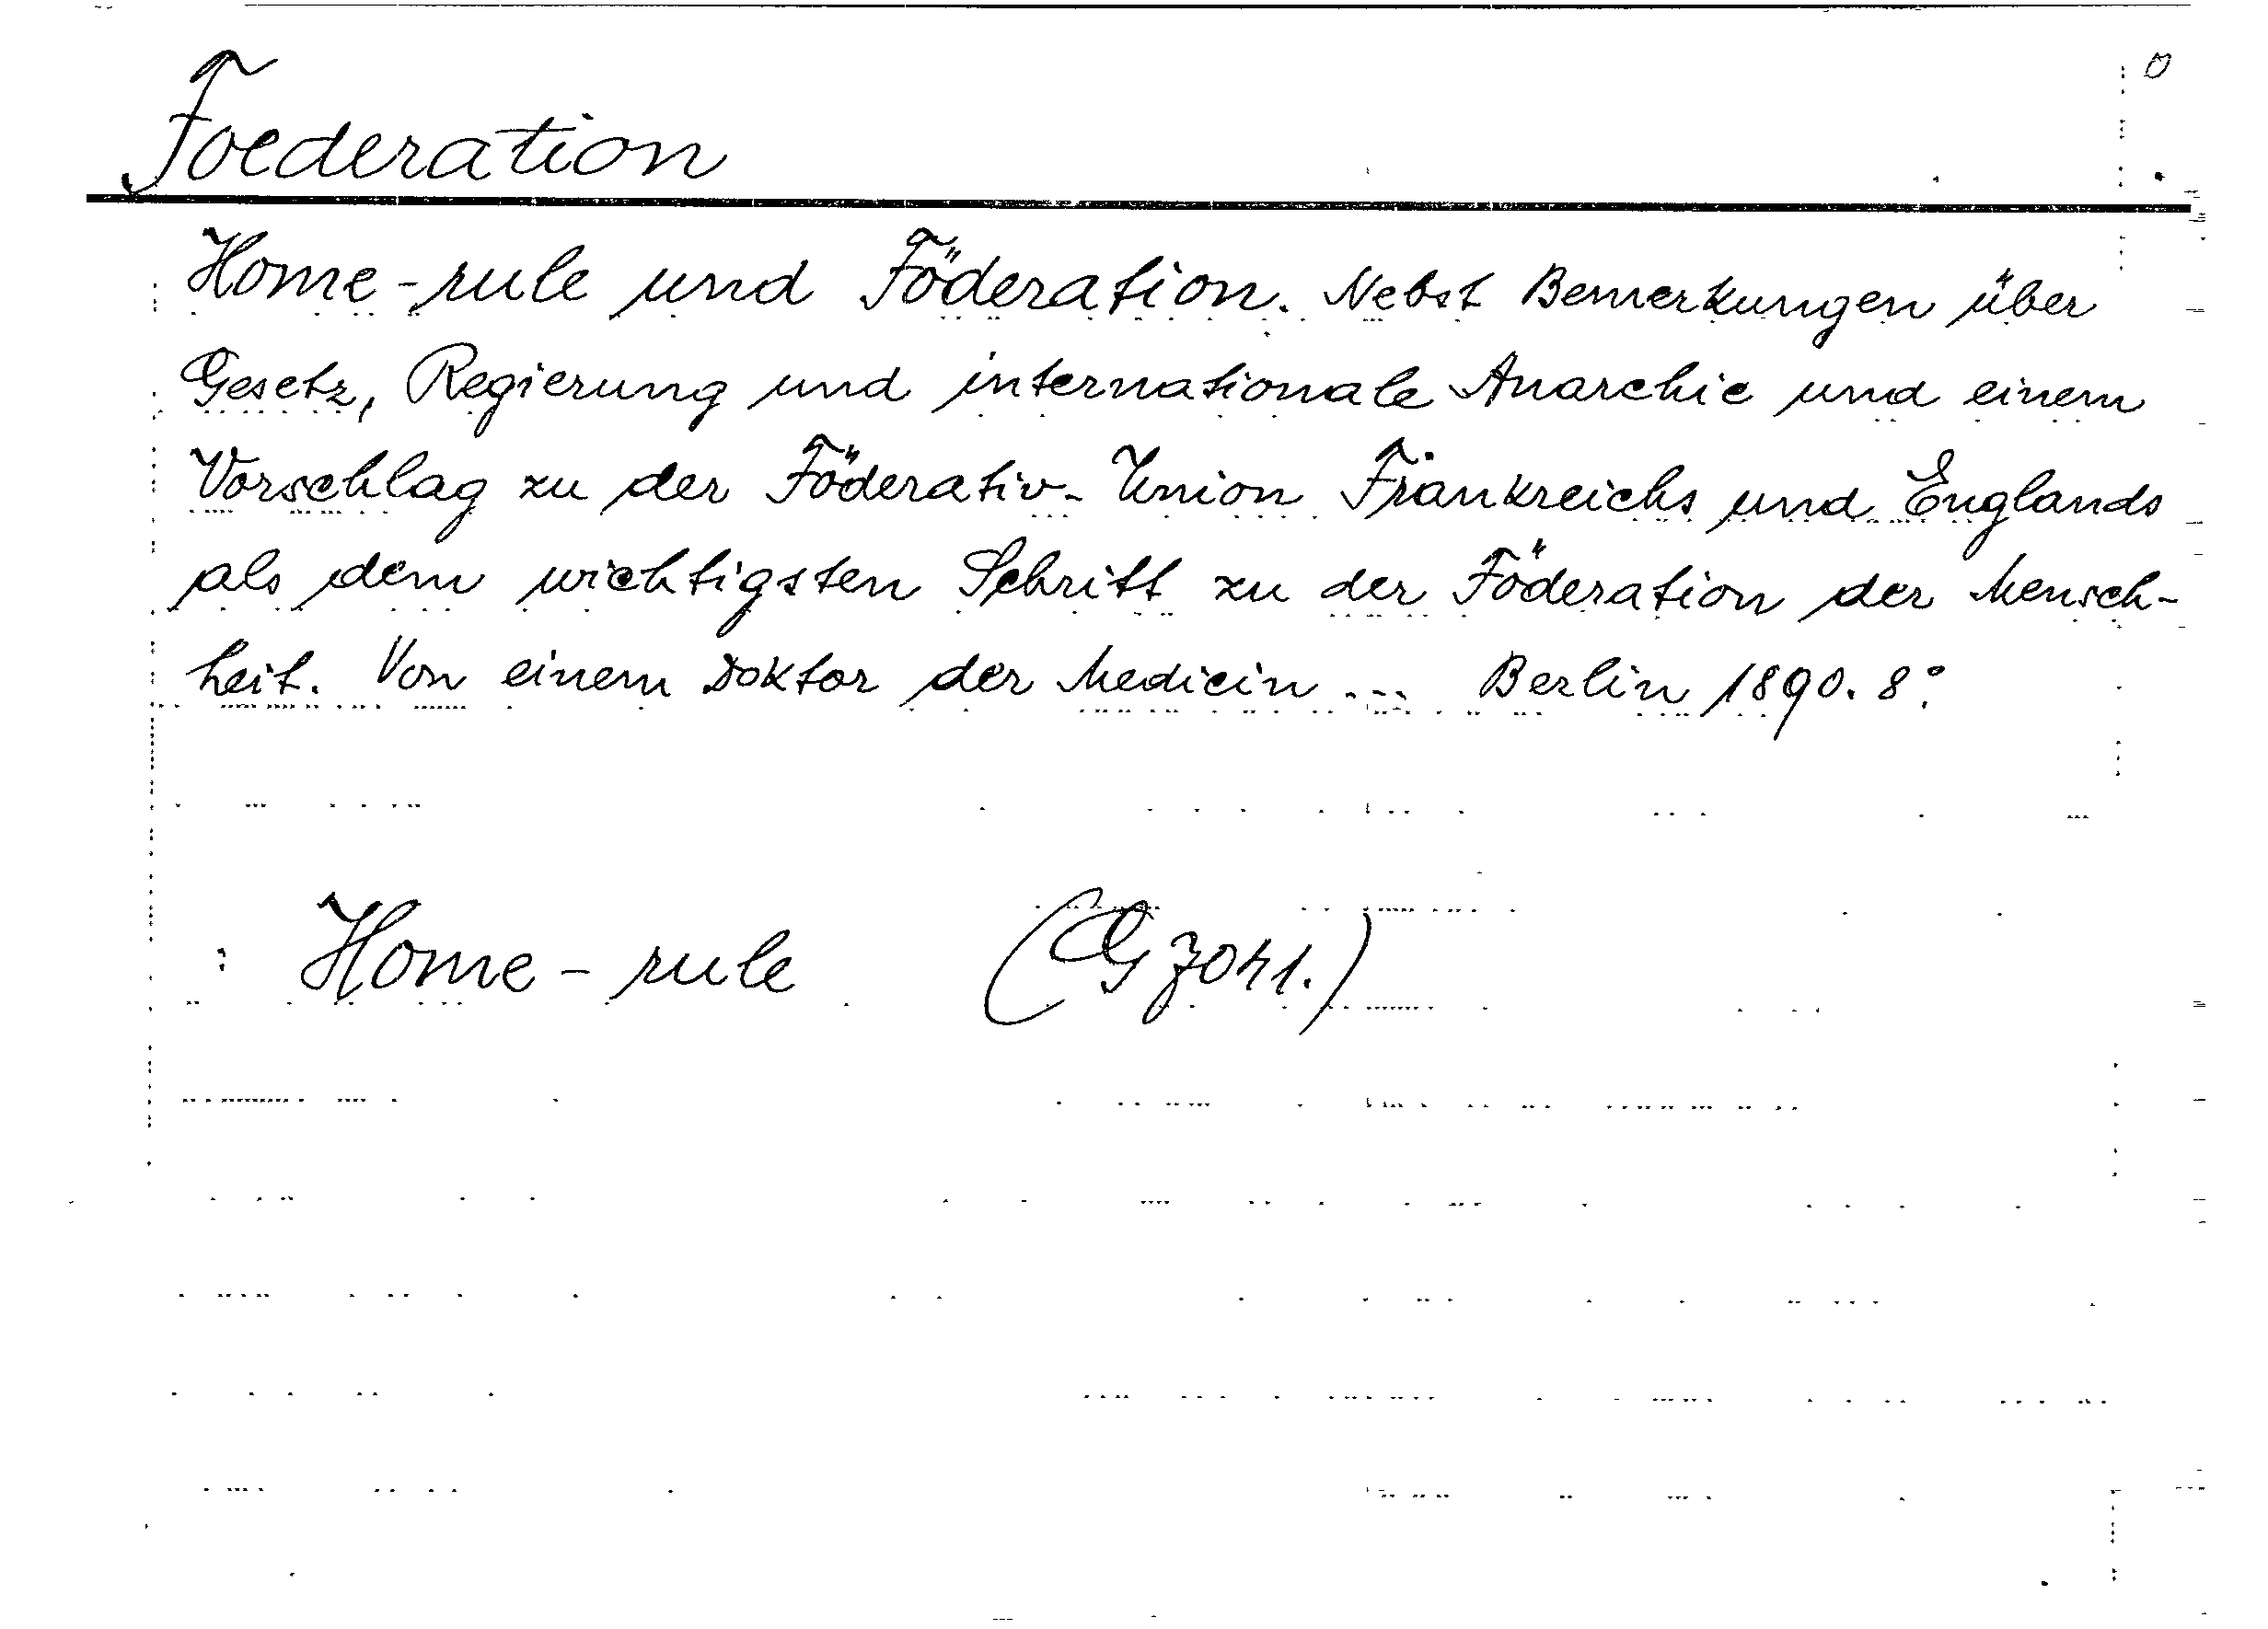 0
Foederation
Home-rule und Föderation. Nebst Bemerkungen über
Gesetz, Regierung und internationale Anarchie und einem
Vorschlag zu der Föderativ-Union Frankreichs und Englands
als dem wichtigsten Schritt zu der Föderation der Mensch-
heit. Von einem Doktor der Medicin ... Berlin 1890. 8°.
: Home-rule (G 7041.)